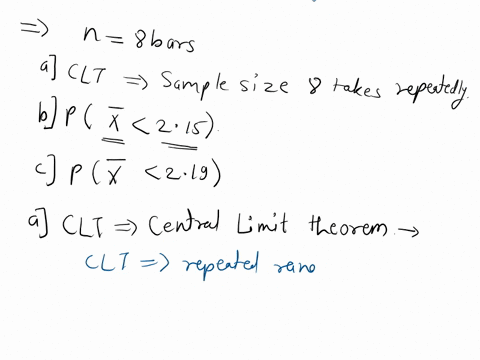 ⇒ n = 8 bars
a] CLT ⇒ Sample size 8 takes repeatedly.
b] P( X̅ < 2.15).
c] P( X̅ < 2.19)
a] CLT ⇒ Central Limit theorem →
CLT ⇒ repeated rano